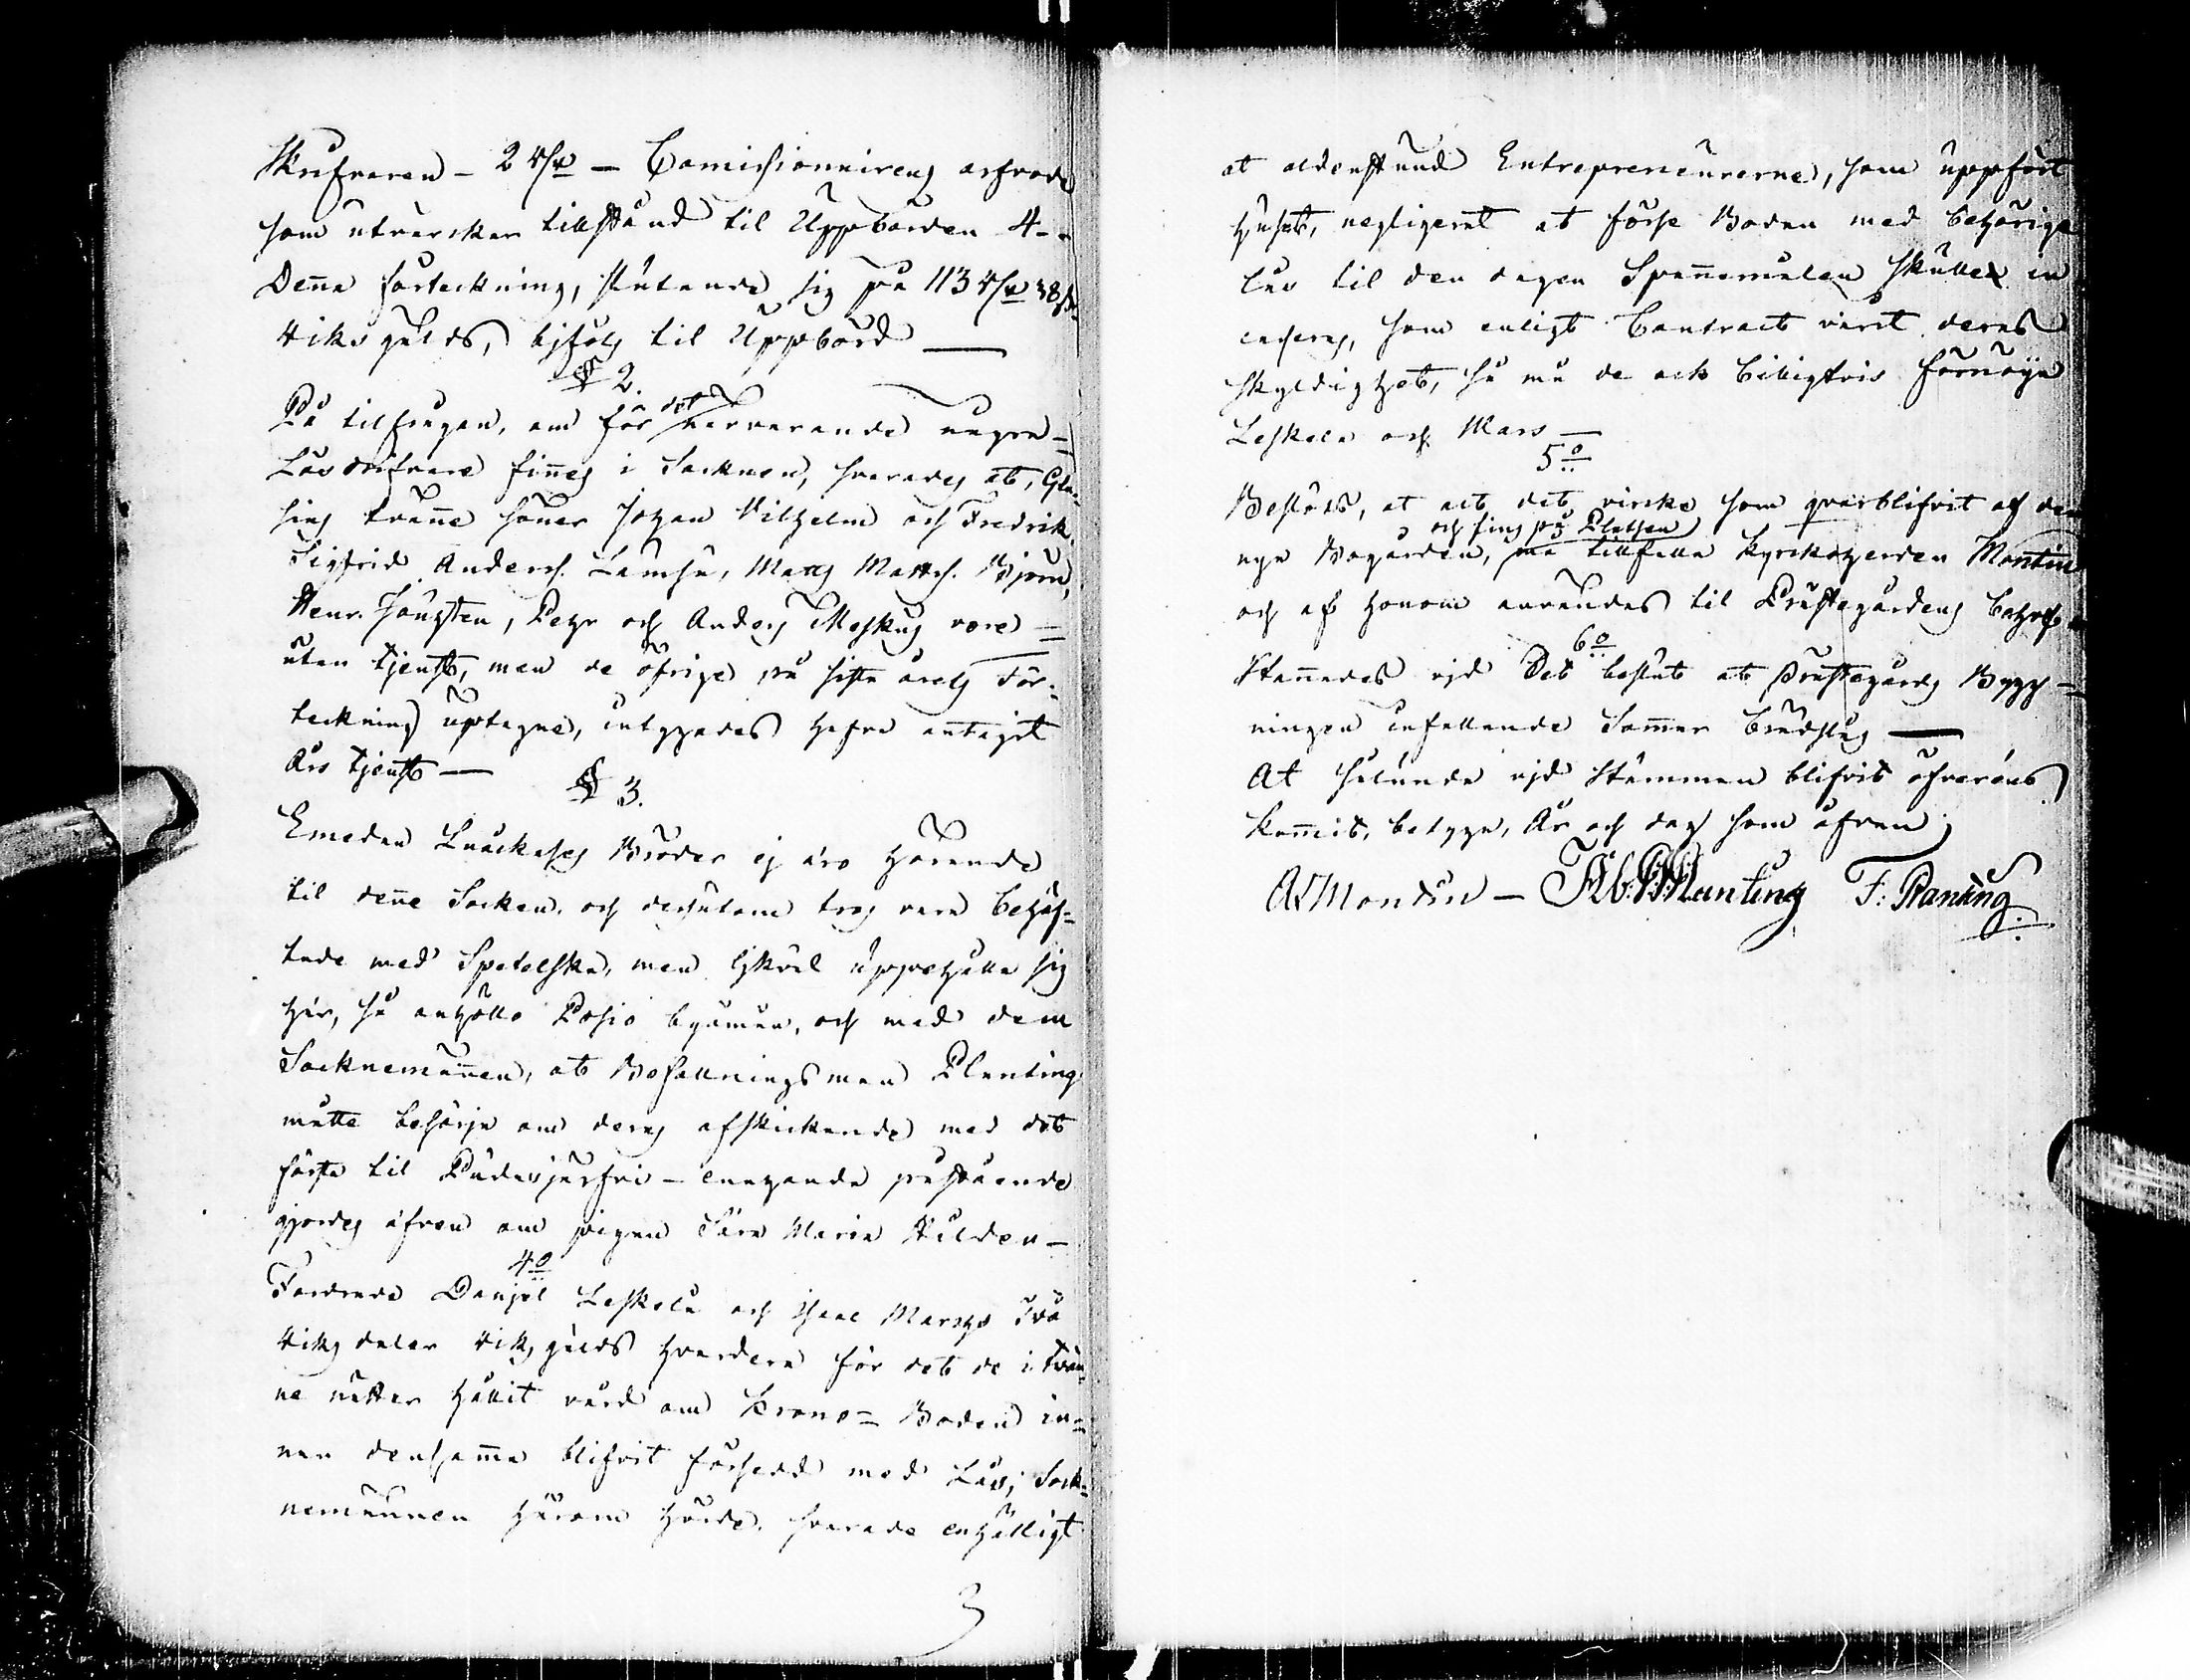 Skrifvaren – 2 Rd – Comissionairens arfvode
som utvärckar tillstånd til Uppbörden 4 –
Denna förteckning, slutande sig på 113 Rd 38 s
Riksgälds, bifölg til Uppbörd —
§ 2.
På tilfrågan, om för det närvarande någre
Lösdrifvare finnes i Socknen, svarades at,
sins tvänne söner Johan Vilhelm och Fredrik,
Sigfrid Anderss. Lämsä, Matts Mattss. Björn,
Henr. Pehr och Anders Moskus vore
utan tjenst, men de öfrige på sista årets För-
teckning uptagne, intygades hafva antagit
Års tjenst —
§ 3.
Emedan Bröder ej äro hörande
til denne Socken, och dessutom tros vara behäf-
tade med Spetelska, men likväl uppehålla sig
här, så anhöllo Posio byamän, och med dem
Socknemännen, at Befallningsman Planting
måtte besörja om deras afskickande med det
första til Pudasjerfvi – enahanda påstående
gjordes äfven om pigan Sara Maria Hilden –
4o
Fordrade Danjel Leskelä och Isaac Två
Riks daler Riksgälds hvardera för det de i tvän-
ne nätter hållit vård om Krono-Boden in-
nan densamma blifvit försedd med Lås; Sock-
nemännen härom hörde, svarade enhälligt
3
at aldenstund Entrepreneurerne, som uppfört
huset, negligerat at förse Boden med behörige
lås til den dagen Spannemålen skulle in
som enligt Contract varit deras
skyldighet, så må de ock billigtvis förnöja
Leskelä och Mars —
5o
Beslöts, at alt det virke som qvarblifvit af den
och fins på Platsen
nya Bogården, må tillfalla Kyrckoherden Montin
och af honom användas til Prästegårdens behof
6o
Stannades vid Det beslut at Prästegårds Bygg-
ningen infallande Sommar brädslås —
At sålunda vid Stämman blifvit öfverens
kommit, betyga, År och dag som ofvan,
A Montin – Planting F: Planting